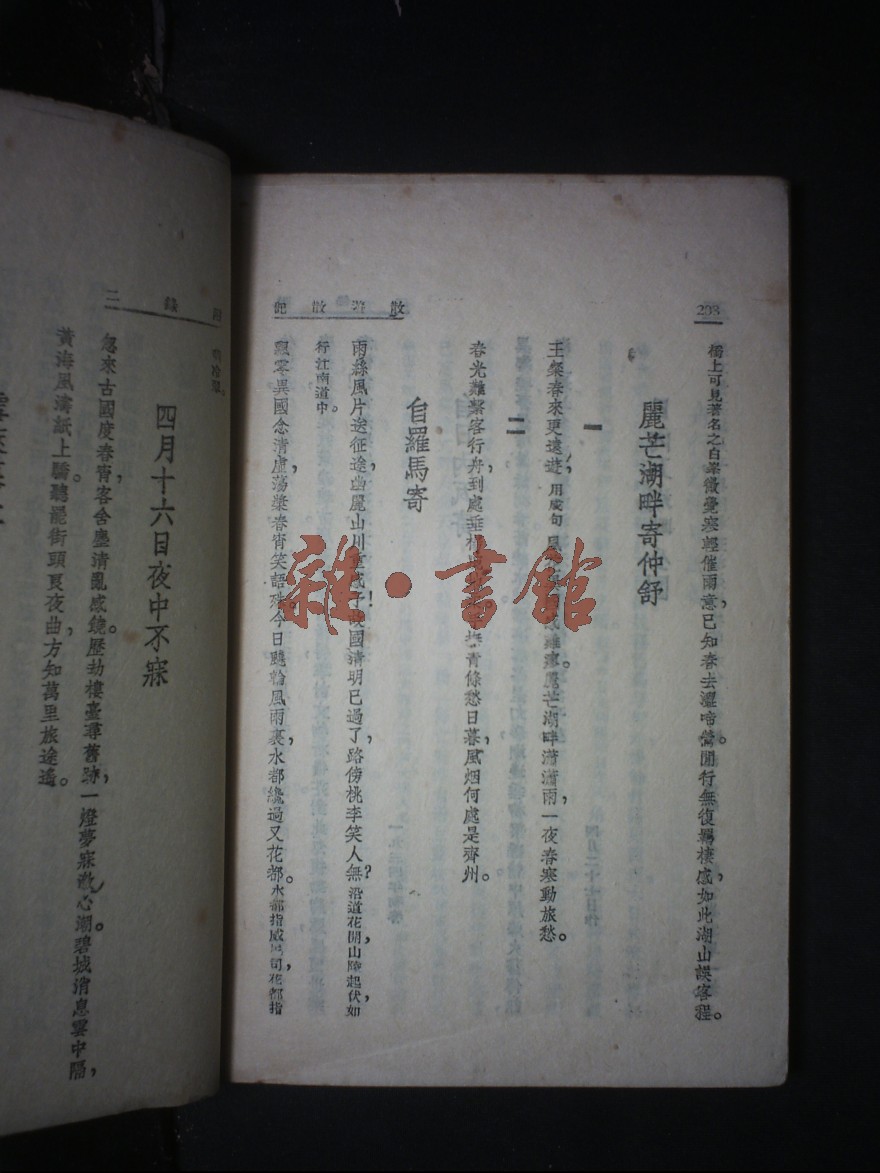 208
獨上可見著名之白峯微覺寒輕催雨意,已知春去澀啼鶯。閒行無復羈棲感,如此湖山誤客程。
麗芒湖畔寄仲舒
一
王粲春來更遠遊,用成句 麗芒湖畔瀟瀟雨,一夜春寒動旅愁。
二
春光難繫客行舟,到處垂 青條愁日暮,風烟何處是齊州。
自羅馬寄
雨絲風片送征途,幽麗山川 故國清明已過了,路傍桃李笑人無?沿道花開山陵起伏如
行江南道中。
飄零異國念清虛,蕩槳春宵笑語 今日颷輪風雨裏,水都纔過又花都。水都指威尼司花都指
散遊散記
附錄二
四月十六日夜中不寐
忽來古國度春宵,客舍塵清亂感饒。歷劫樓臺尋舊跡,一燈夢寐 心潮。碧城消息雲中隔,
黃海風濤紙上驕。聽罷街頭艮夜曲,方知萬里旅途遙。
雜·書館